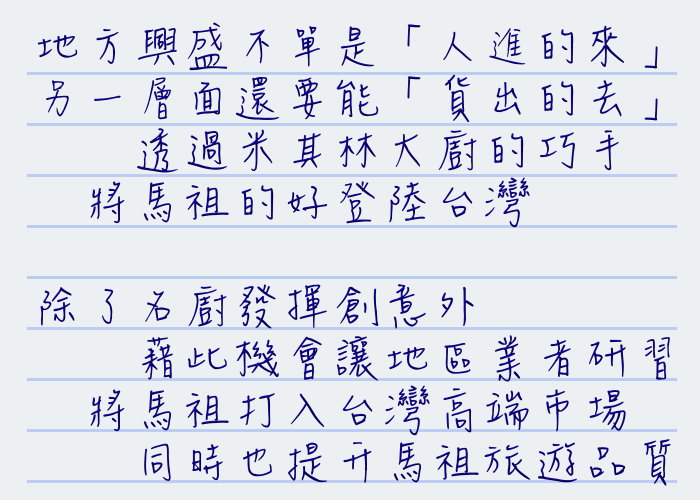 地方興盛不單是「人進的來」
另一層面還要能「貨出的去」
透過米其林大廚的巧手
將馬祖的好登陸台灣
除了名廚發揮創意外
藉此機會讓地區業者研習
將馬祖打入台灣高端市場
同時也提升馬祖旅遊品質